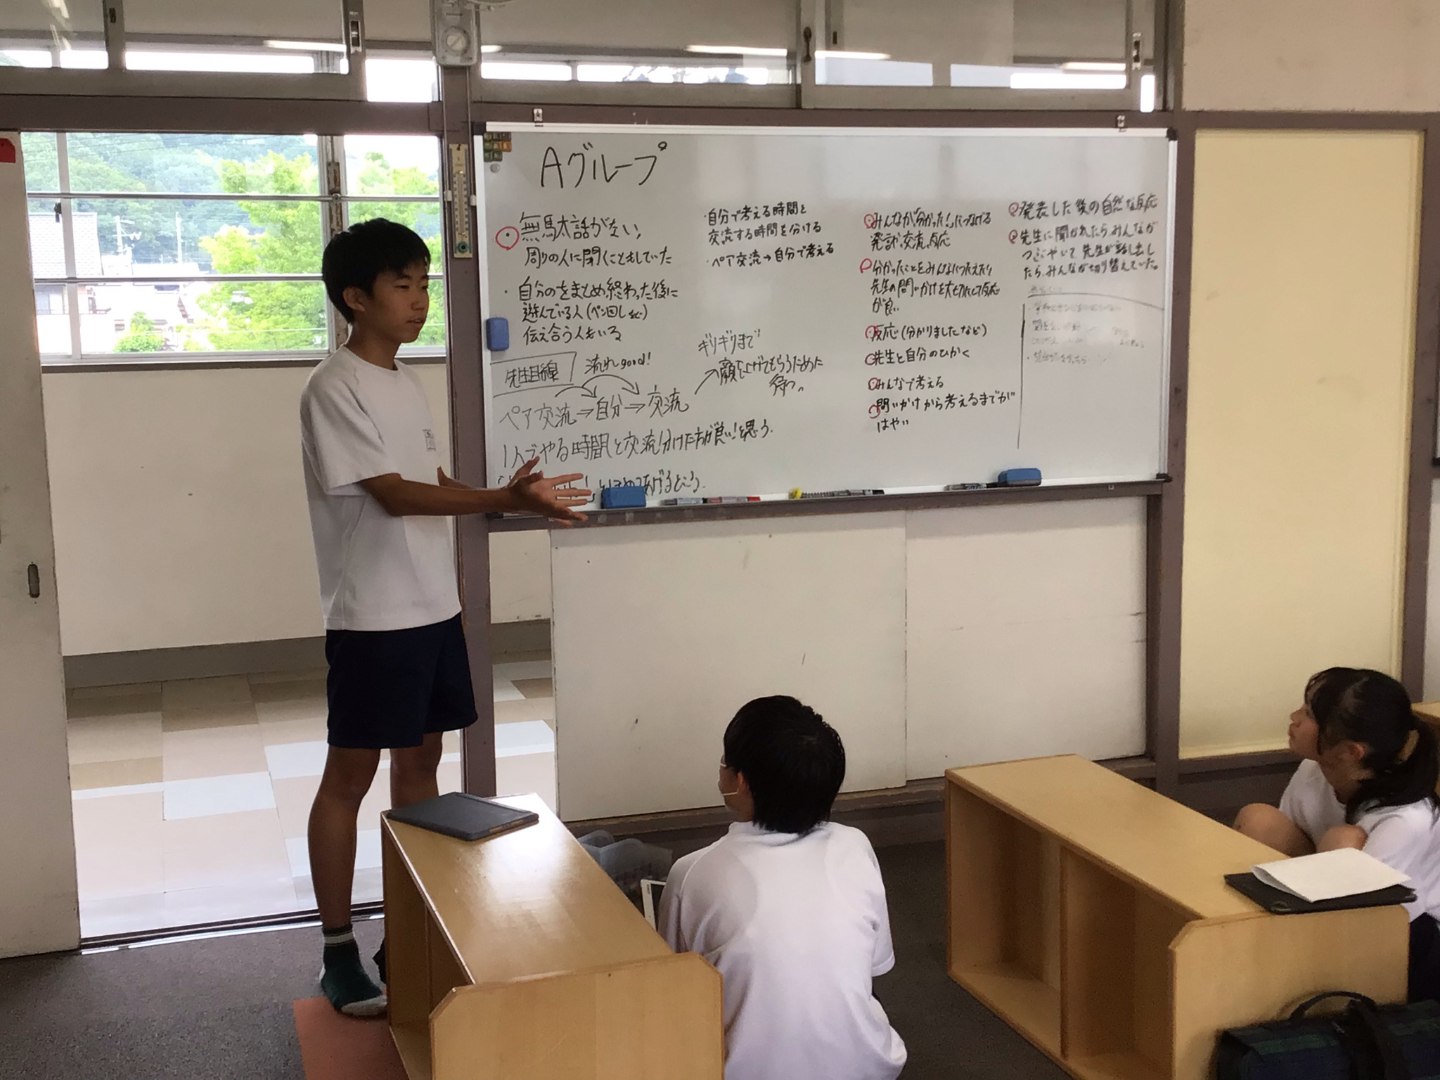 Aグループ
無駄話がない
周りの人に聞くこともしていた
・自分のをまとめ終わった後に
遊んでいる人(ペン回しなど)
伝え合う人もいる
先生目線
流れgood!
ペア交流→自分→交流
1人でやる時間と交流分けた方が良い!と思う.
ギリギリまで
顔を上げてもらうために
待つ。
・自分で考える時間と
交流する時間を分ける
・ペア交流→自分で考える
みんなが分かった!につなげる
発言、交流、反応
分かったことをみんなにつたえたり
先生の問いかけを大切にして反応
が良い
反応(分かりましたなど)
先生と自分のひかく
みんなで考える
問いかけから考えるまでが
はやい
発表した後の自然な反応
先生に聞かれたらみんなが
つぶやいて先生が話し出し
たらみんなが切り替えていた。